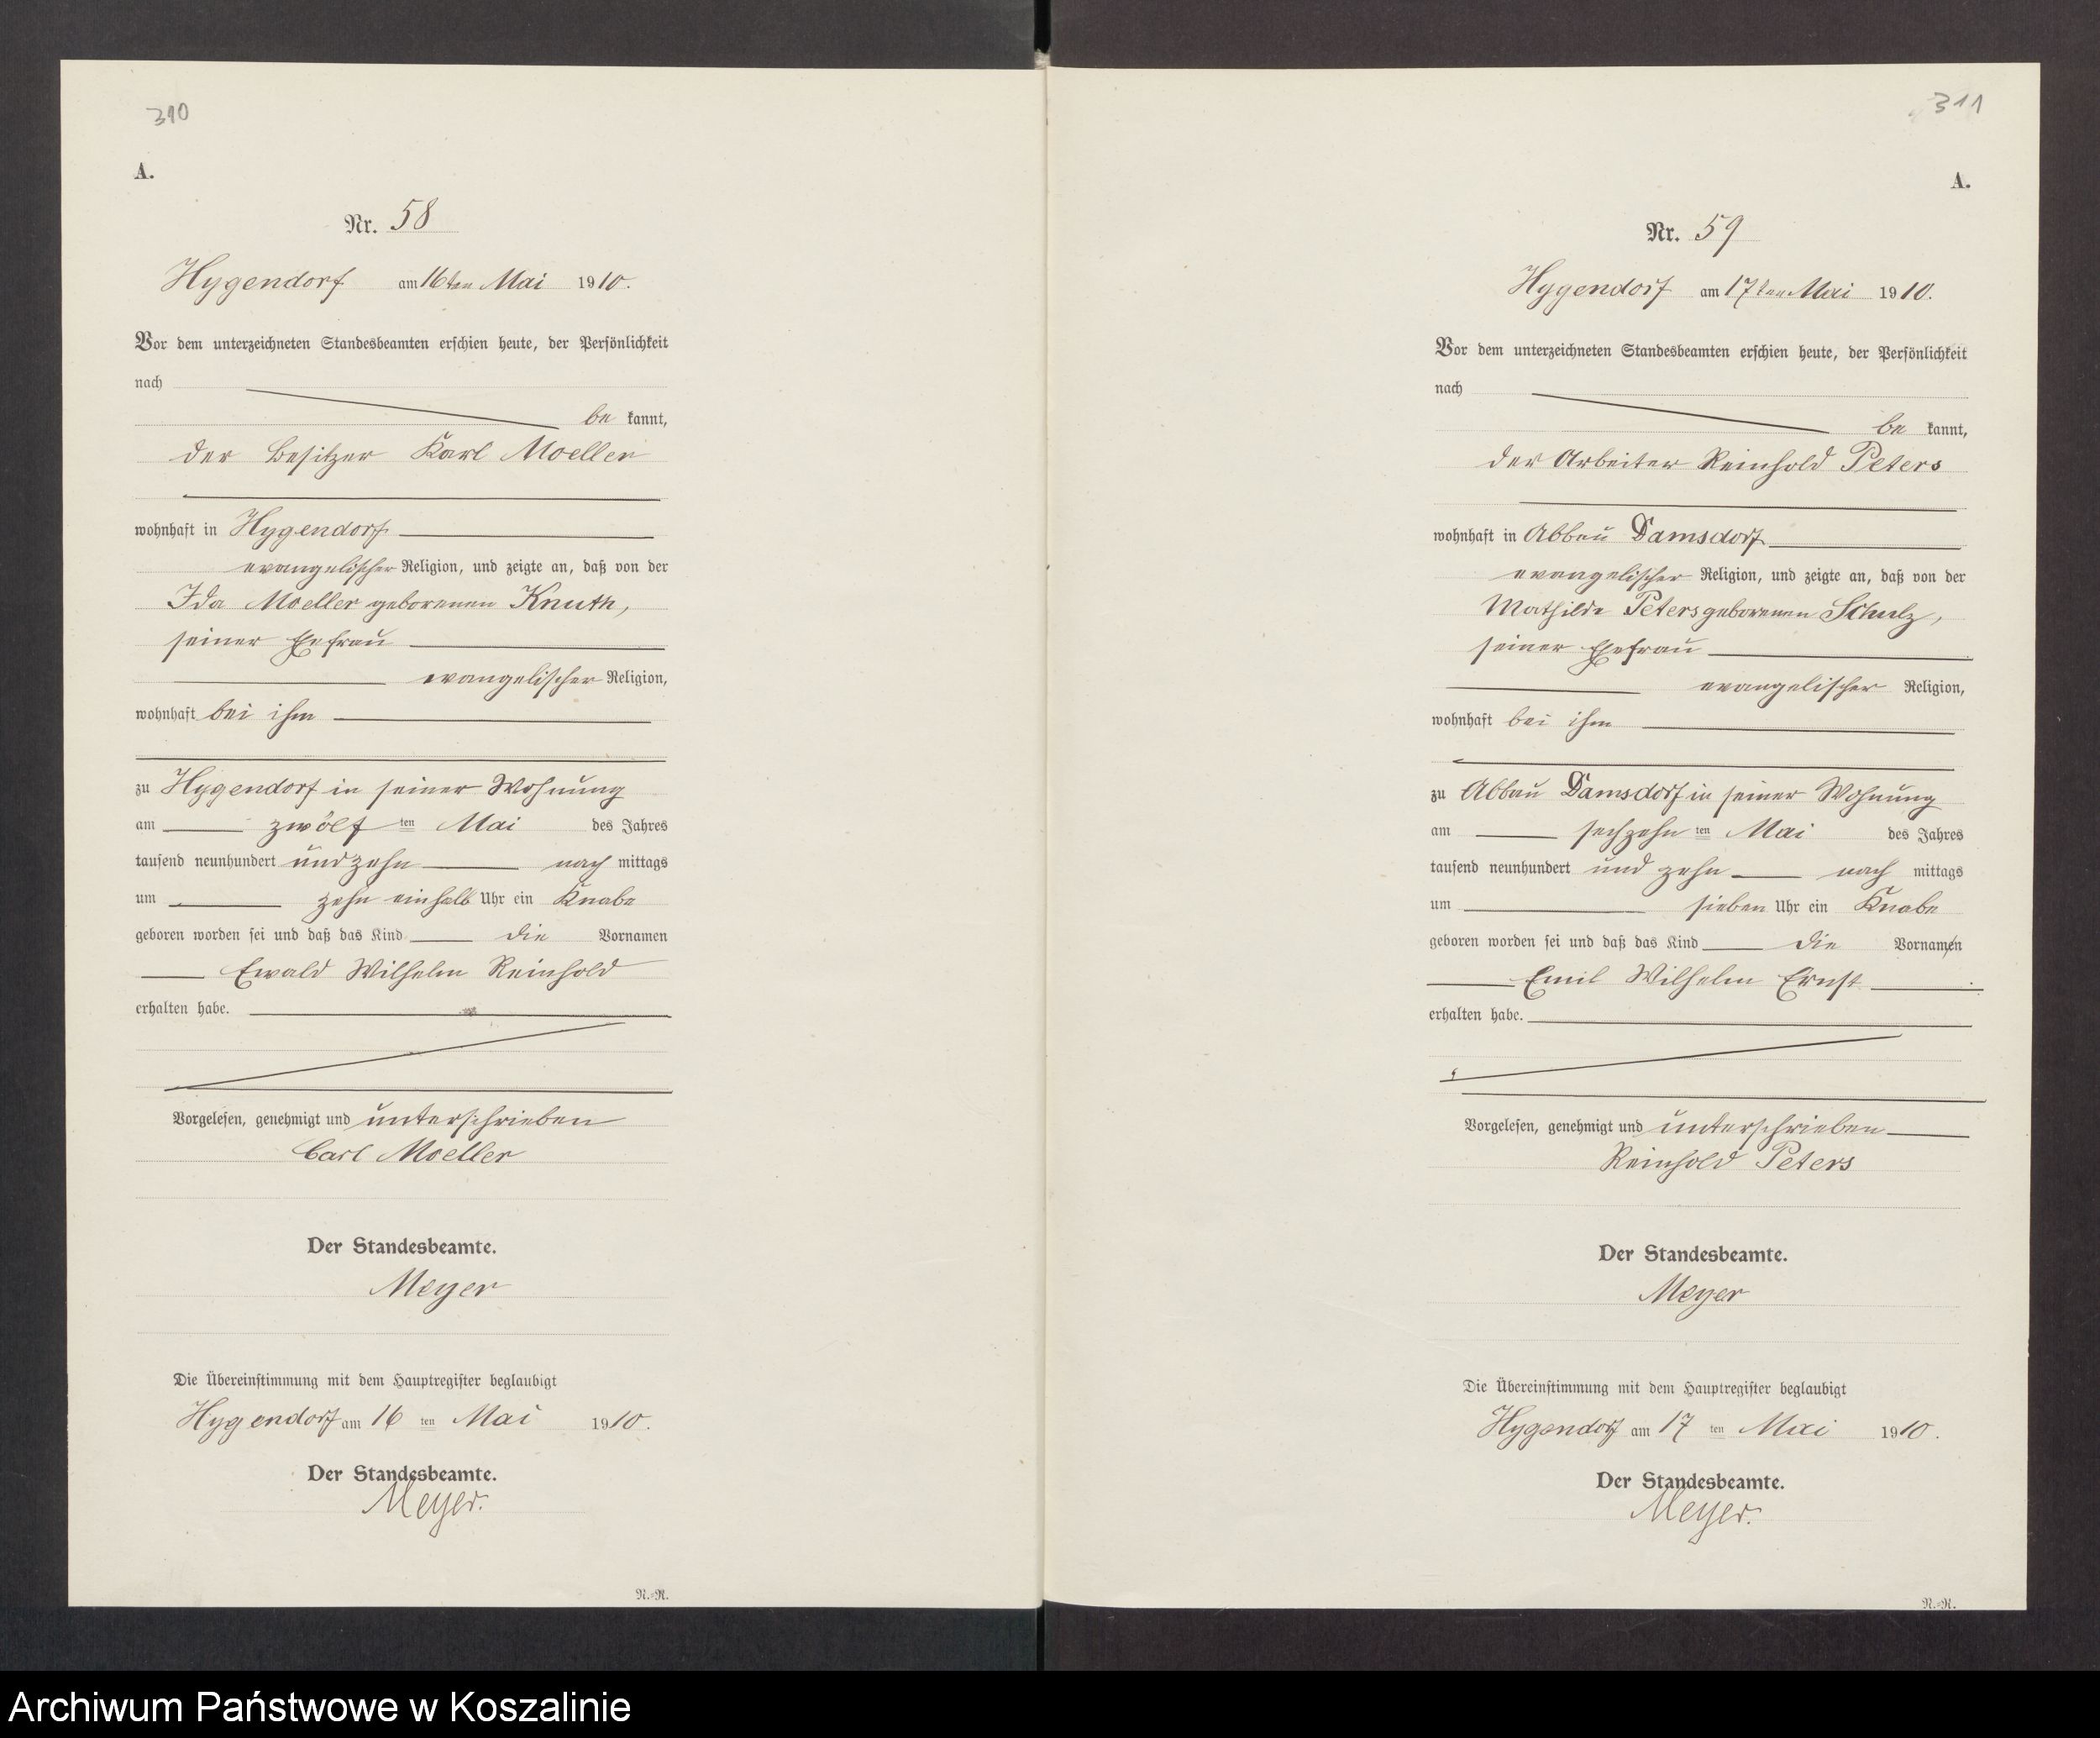 310
A.
Nr. 58
Hygendorf am 16ten Mai 1910.
Vor dem unterzeichneten Standesbeamten erschien heute, der Persönlichkeit
nach
be kannt,
der Besitzer Karl Moeller
wohnhaft in Hygendorf
evangelischer Religion, und zeigte an, daß von der
Ida Moeller geborenen Knuth,
seiner Ehefrau
evangelischer Religion,
wohnhaft bei ihm
zu Hygendorf in seiner Wohnung
am zwölf ten Mai des Jahres
tausend neunhundert und zehn nach mittags
um zehn einhalb Uhr ein Knabe
geboren worden sei und daß das Kind die Vornamen
Ewald Wilhelm Reinhold
erhalten habe.
Vorgelesen, genehmigt und unterschrieben
Carl Moeller
Der Standesbeamte.
Meyer
Die Übereinstimmung mit dem Hauptregister beglaubigt
Hygendorf am 16 ten Mai 1910.
Der Standesbeamte.
Meyer.
N.-R.
311
A.
Nr. 59
Hygendorf am 17ten Mai 1910.
Vor dem unterzeichneten Standesbeamten erschien heute, der Persönlichkeit
nach
be kannt,
der Arbeiter Reinhold Peters
wohnhaft in Abbau Damsdorf
evangelischer Religion, und zeigte an, daß von der
Mathilde Peters geborenen Schulz,
seiner Ehefrau
evangelischer Religion,
wohnhaft bei ihm
zu Abbau Damsdorf in seiner Wohnung
am sechzehn ten Mai des Jahres
tausend neunhundert und zehn nach mittags
um sieben Uhr ein Knabe
geboren worden sei und daß das Kind die Vornamen
Emil Wilhelm Ernst
erhalten habe.
Vorgelesen, genehmigt und unterschrieben
Reinhold Peters
Der Standesbeamte.
Meyer
Die Übereinstimmung mit dem Hauptregister beglaubigt
Hygendorf am 17 ten Mai 1910.
Der Standesbeamte.
Meyer.
N.-R.
Archiwum Państwowe w Koszalinie